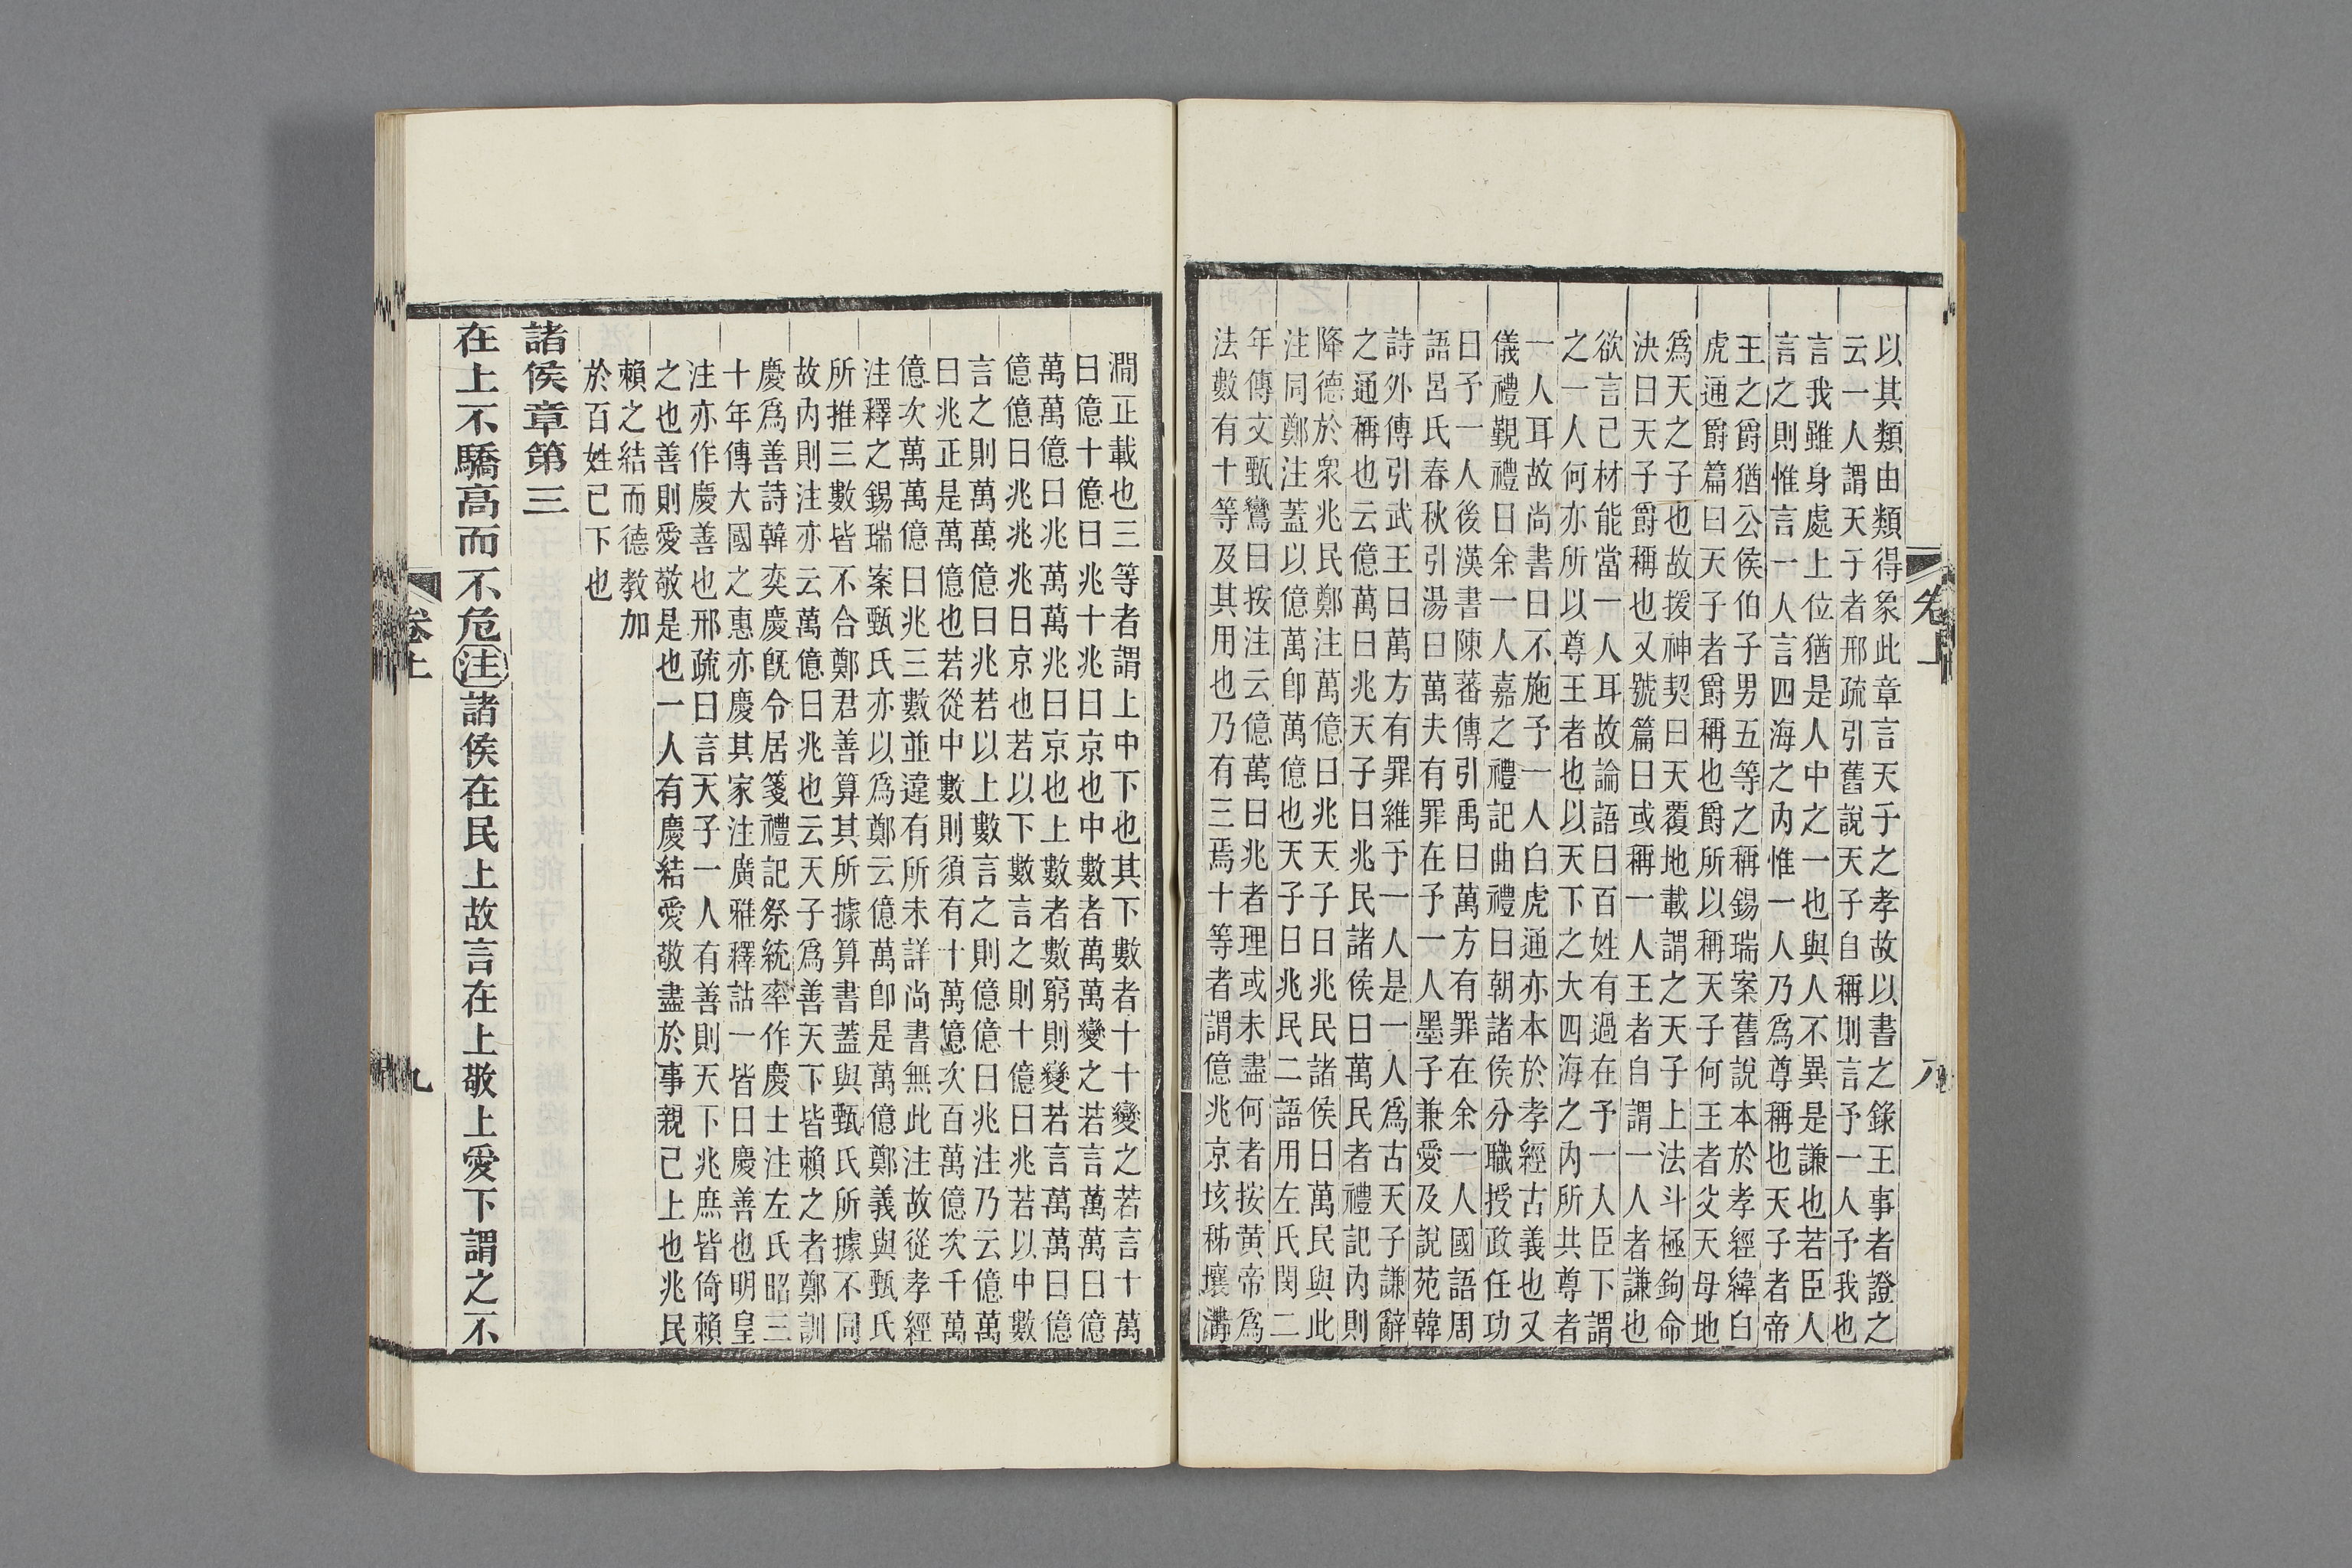 以其類由類得象此章言天子之孝故以書之錄王事者證之
云一人謂天子者邢疏引舊說天子自稱則言予一人予我也
言我雖身處上位猶是人中之一也與人不異是謙也若臣人
言之則惟言一人言四海之內惟一人乃爲尊稱也天子者帝
王之爵猶公侯伯子男五等之稱錫瑞案舊說本於孝經緯白
虎通爵篇曰天子者爵稱也爵所以稱天子何王者父天母地
爲天之子也故援神契曰天覆地載謂之天子上法斗極鉤命
決曰天子爵稱也又號篇曰或稱一人王者自謂一人者謙也
欲言己材能當一人耳故論語曰百姓有過在予一人臣下謂
之一人何亦所以尊王者也以天下之大四海之內所共尊者
一人耳故尚書曰不施予一人白虎通亦本於孝經古義也又
儀禮覲禮曰余一人嘉之禮記曲禮曰朝諸侯分職授政任功
曰予一人後漢書陳蕃傳引禹曰萬方有罪在余一人國語周
語呂氏春秋引湯曰萬夫有罪在予一人墨子兼愛及說苑韓
詩外傳引武王曰萬方有罪維予一人是一人爲古天子謙辭
之通稱也云億萬曰兆天子曰兆民諸侯曰萬民者禮記內則
降德於衆兆民鄭注萬億曰兆天子曰兆民諸侯曰萬民與此
注同鄭注蓋以億萬卽萬億也天子曰兆民二語用左氏閔二
年傳文甄鸞曰按注云億萬曰兆者理或未盡何者按黃帝爲
法數有十等及其用也乃有三焉十等者謂億兆京垓秭壤溝
卷上
八
澗正載也三等者謂上中下也其下數者十十變之若言十萬
曰億十億曰兆十兆曰京也中數者萬萬變之若言萬萬曰億
萬萬億曰兆萬萬兆曰京也上數者數窮則變若言萬萬曰億
億億曰兆兆兆曰京也若以下數言之則十億曰兆若以中數
言之則萬萬億曰兆若以上數言之則億億曰兆注乃云億萬
曰兆正是萬億也若從中數則須有十萬億次百萬億次千萬
億次萬萬億曰兆三數並違有所未詳尚書無此注故從孝經
注釋之錫瑞案甄氏亦以爲鄭云億萬卽是萬億鄭義與甄氏
所推三數皆不合鄭君善算其所據算書蓋與甄氏所據不同
故內則注亦云萬億曰兆也云天子爲善天下皆賴之者鄭訓
慶爲善詩韓奕慶旣令居箋禮記祭統率作慶士注左氏昭三
十年傳大國之惠亦慶其家注廣雅釋詁一皆曰慶善也明皇
注亦作慶善也邢疏曰言天子一人有善則天下兆庶皆倚賴
之也善則愛敬是也一人有慶結愛敬盡於事親己上也兆民
賴之結而德教加
於百姓已下也
諸侯章第三
在上不驕高而不危注諸侯在民上故言在上敬上愛下謂之不
卷上
九